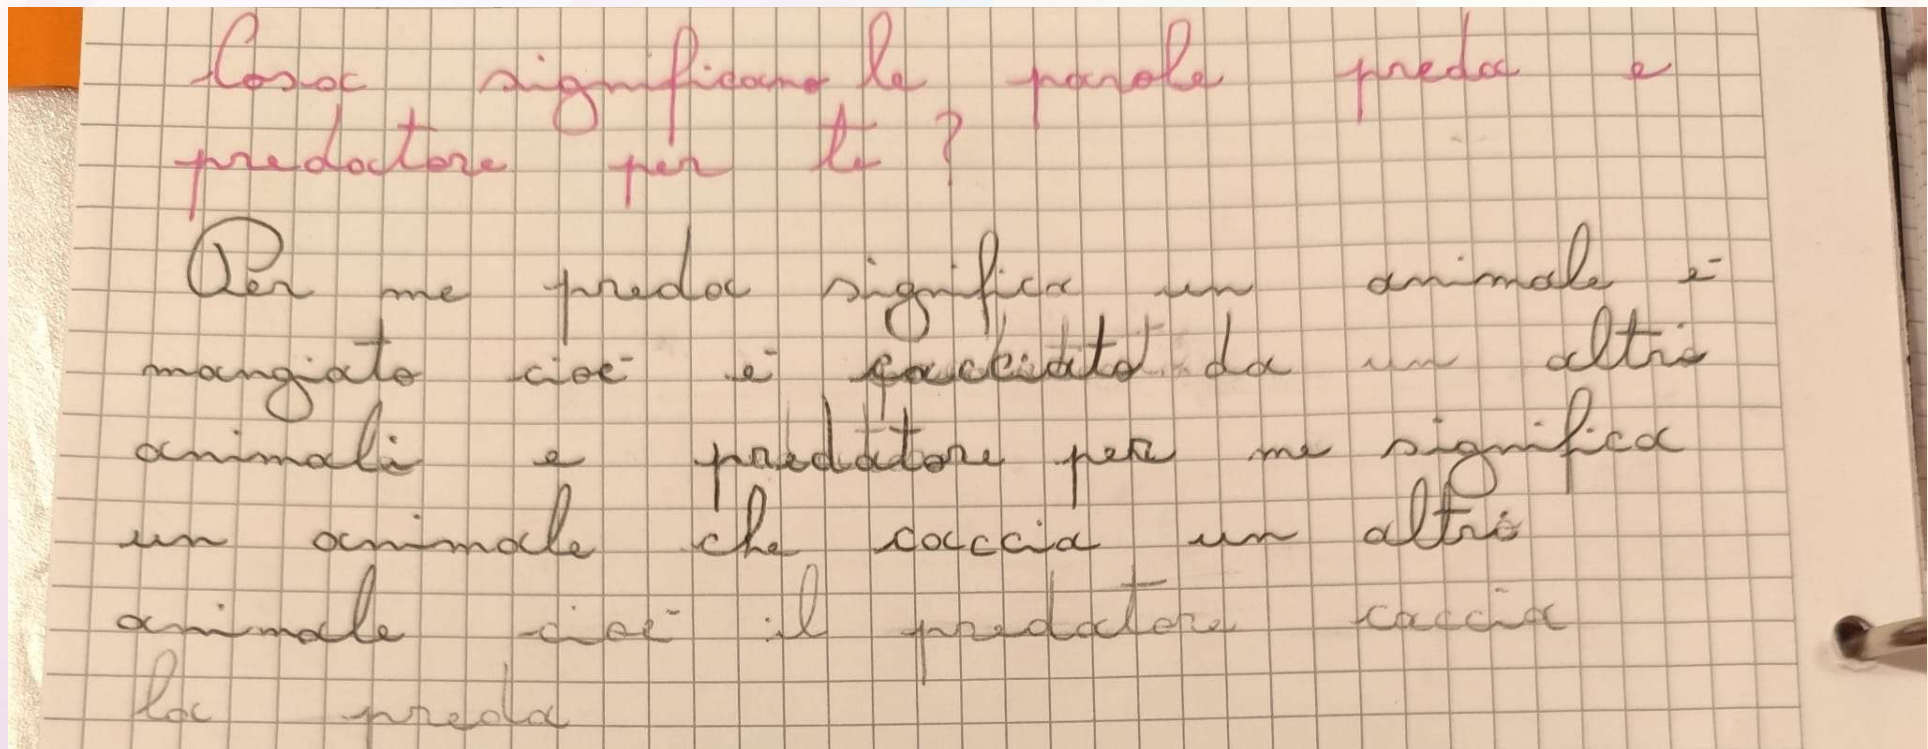 Cosa significano le parole preda e
predatore per te?
Per me preda significa un animale è
mangiato cioè è cacciato da un altro
animali e predatore per me significa
un animale che caccia un altro
animale cioè il predatore caccia
la preda